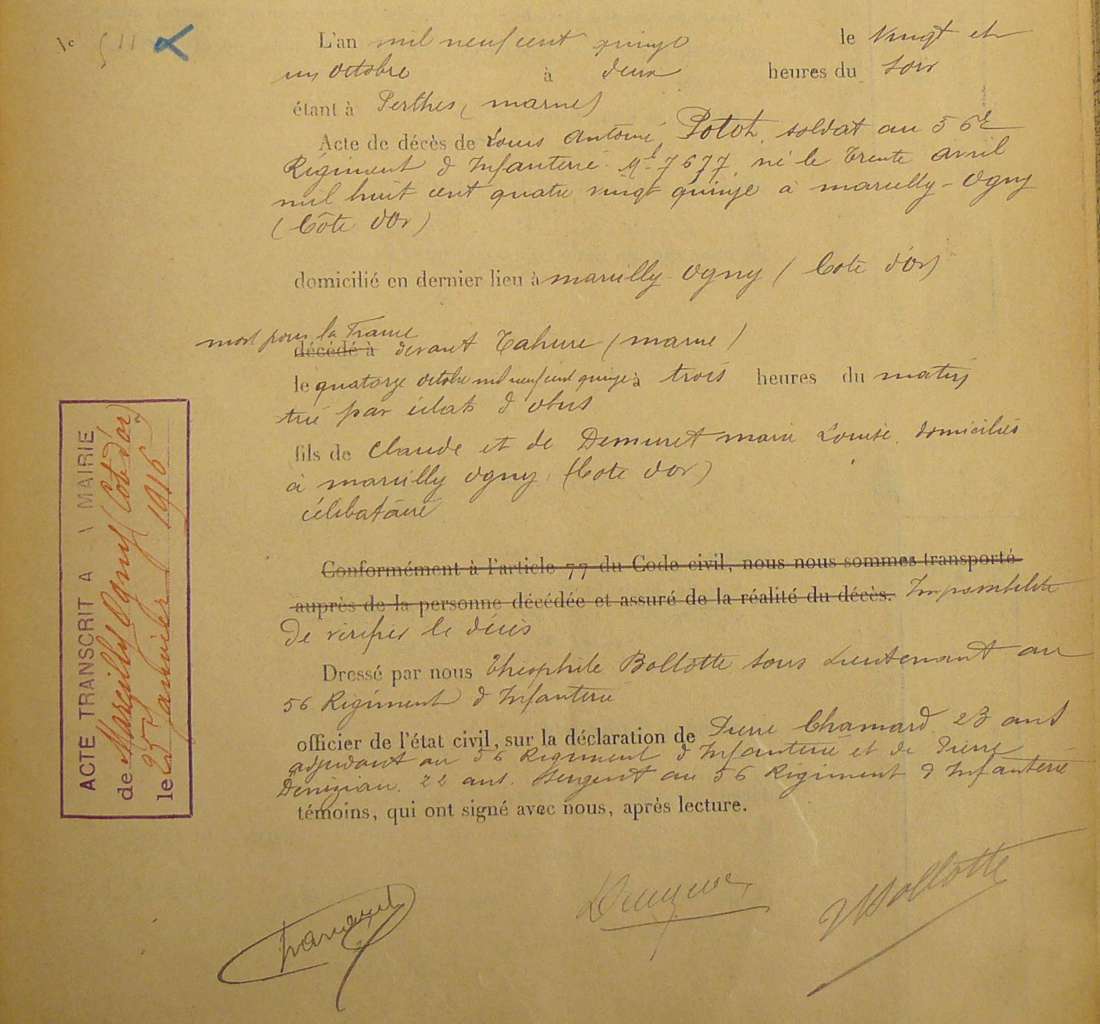 N° 511
L'an mil neuf cent quinze le Vingt et
un octobre à deux heures du soir
étant à Perthes (marne)
Acte de décès de Louis Antoine Potot, soldat au 56e
Régiment d'Infanterie Ml 7677, né le Trente avril
mil huit cent quatre vingt quinze à marcilly-Ogny
(Côte d'Or)
domicilié en dernier lieu à marcilly-Ogny (Côte d'Or)
mort pour la France
décédé à devant Tahure (marne)
le quatorze octobre mil neuf cent quinze à trois heures du matin
tué par éclats d'obus
fils de Claude et de Demuret marie Louise, domiciliés
à marcilly ogny (Cote d'Or)
célibataire
Conformément à l'article 77 du Code civil, nous nous sommes transporté
auprès de la personne décédée et assuré de la réalité du décès. Impossibilité
De vérifier le décès
Dressé par nous Théophile Bollotte sous Lieutenant au
56 Régiment d'Infanterie
officier de l'état civil, sur la déclaration de Pierre Chamard 23 ans
adjudant au 56 Régiment d'Infanterie et de Pierre
22 ans. Sergent au 56 Régiment d'Infanterie
témoins, qui ont signé avec nous, après lecture.
Chamard
Bollotte
ACTE TRANSCRIT A MAIRIE
de Marcilly Ogny (Côte d'or)
le 25 Janvier 1916